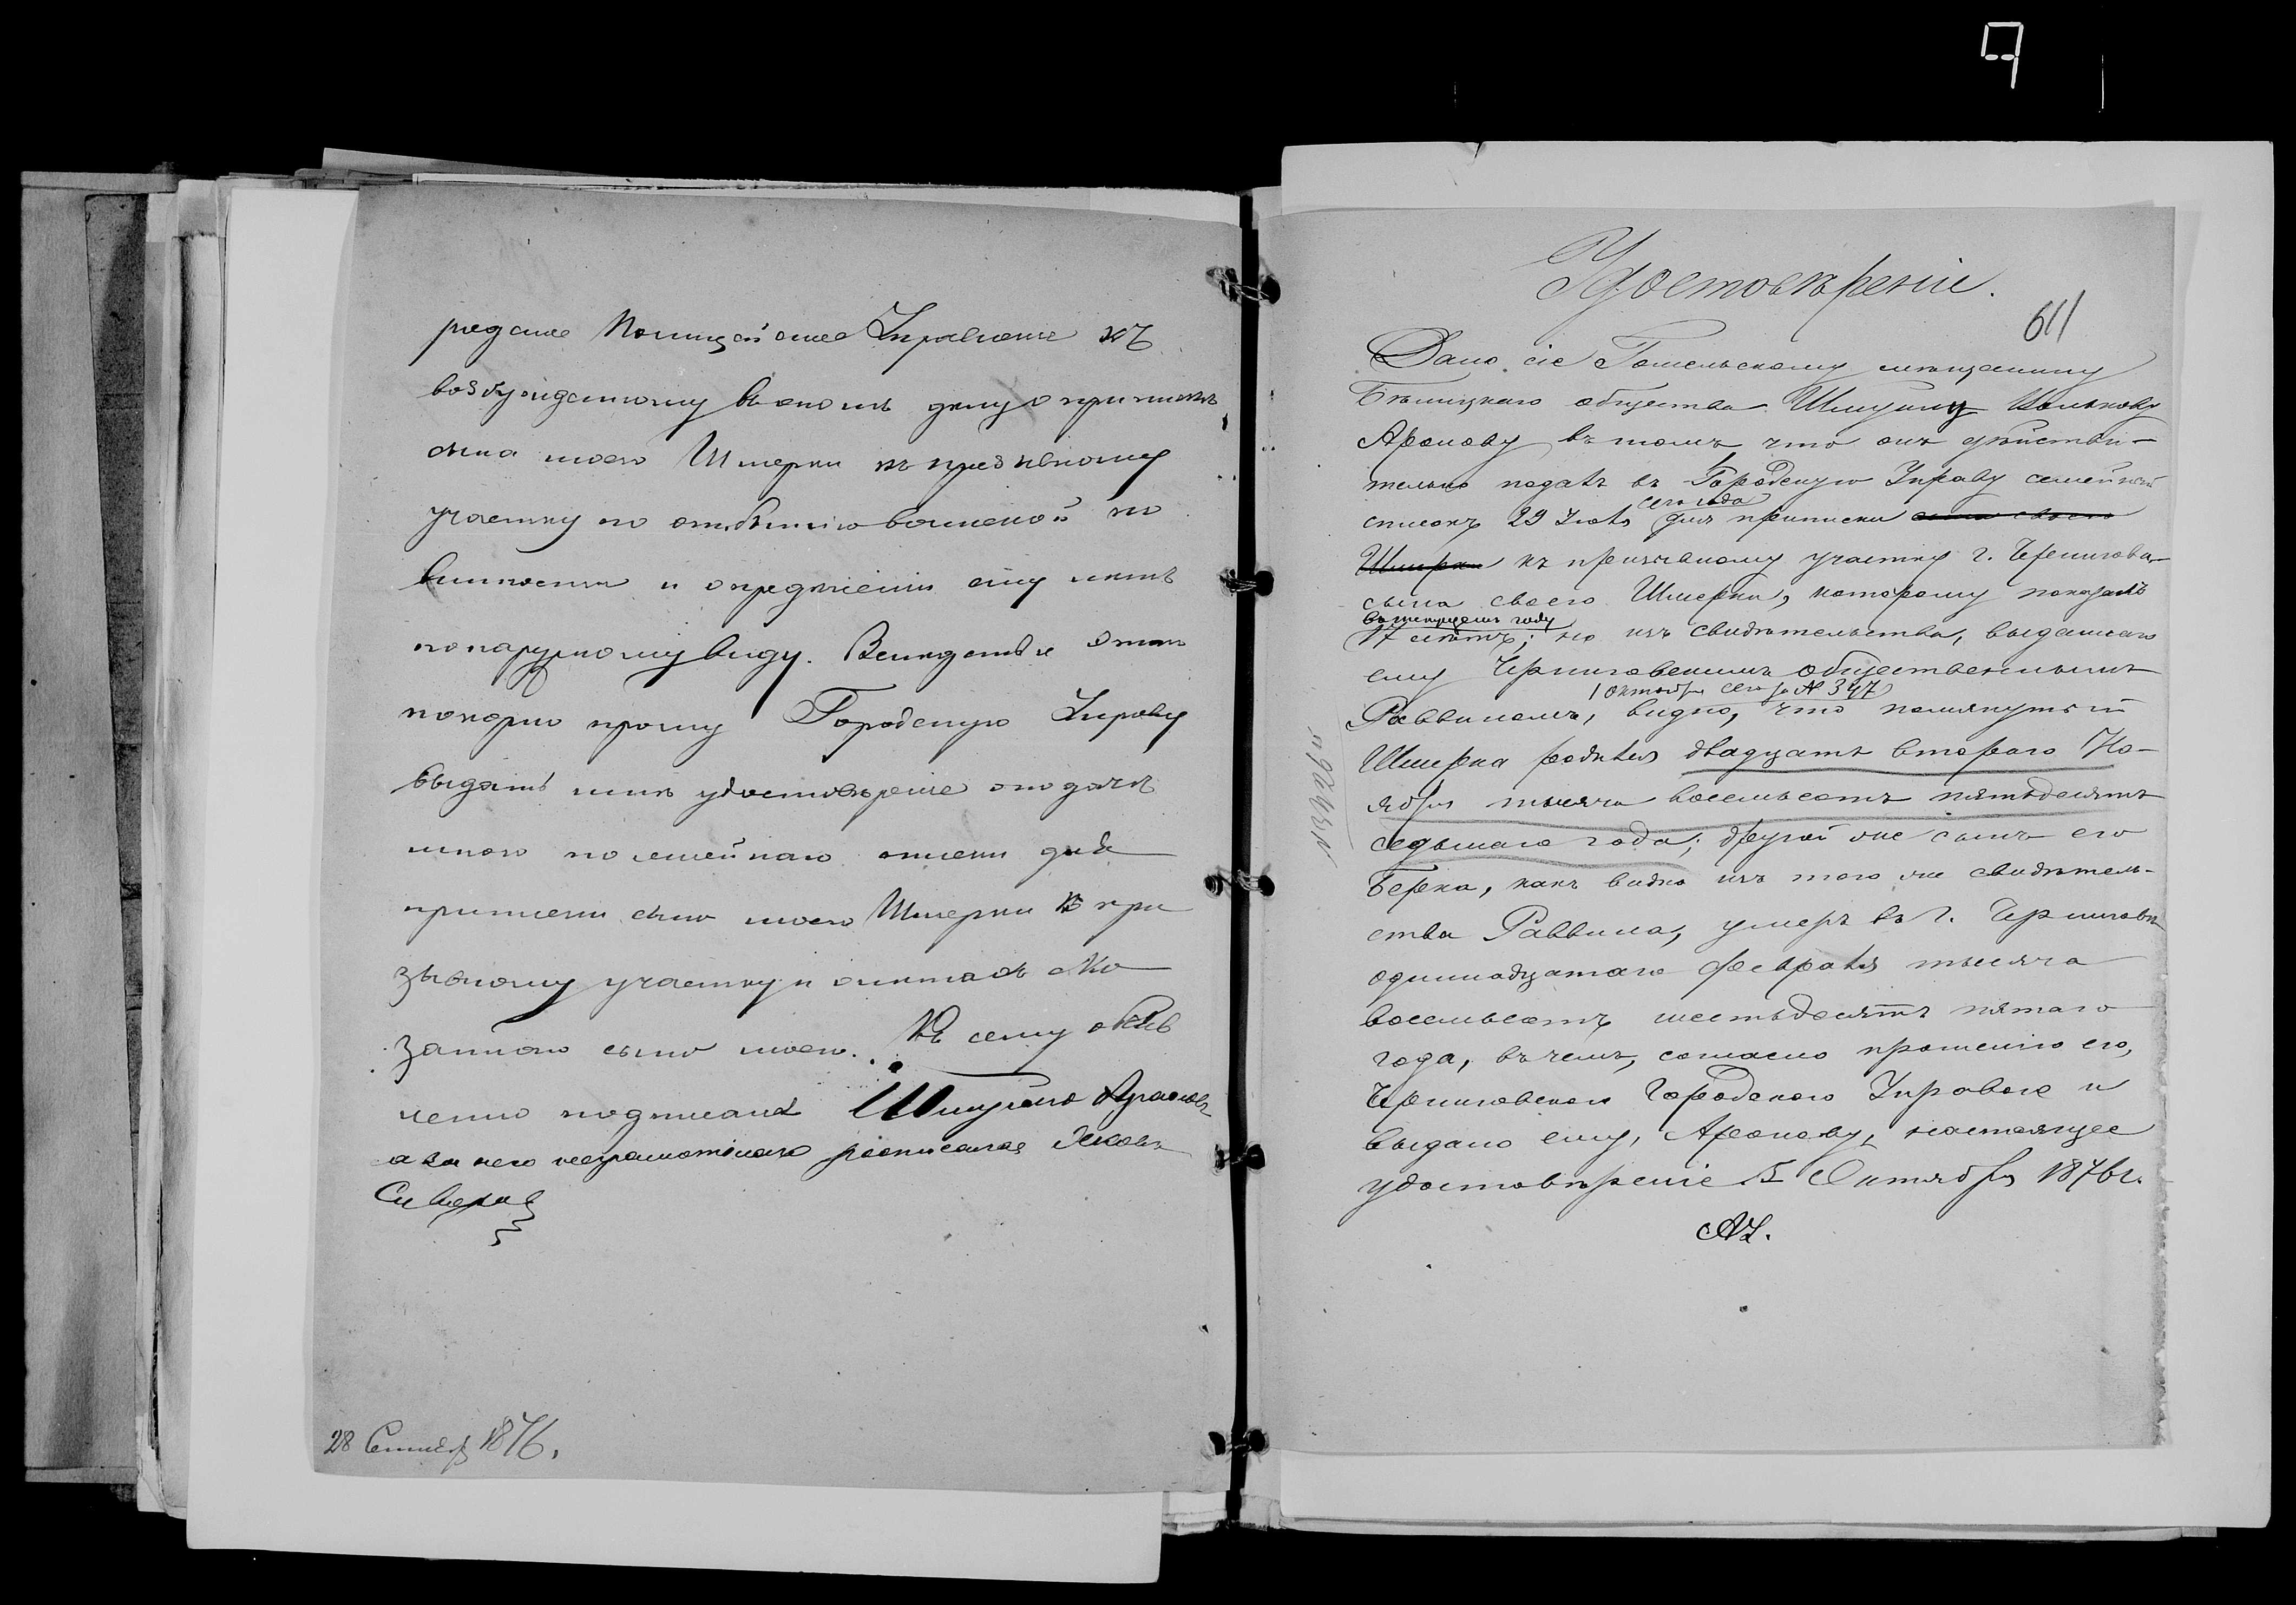 редское Полицейское Управление къ
возбужденному въ ономъ делу о приписке
сына моего Шмерки къ призывному
участку по отбытию воинской по
винности и определении ему летъ
по наружному виду. Вследствие этого
покорно прошу Городскую Управу
выдать мне удостоверение о подаче
мною посемейного списка для
приписки сына моего Шмерки къ при
зывному участку и о летахъ ска
занного сына моего. Къ сему объяв
лению подписался Шмуйло Ароновъ
а за него неграмотного росписался Яковъ
28 Сентября 1876.
Удостовѣреніе.
611
Дано сіе Гомельскому мѣщанину
Бѣлицкаго общества Шмуйлу Аронову въ томъ, что онъ дѣйстви-
тельно подалъ въ Городскую Управу семейный
сего года
списокъ 29 Іюля для приписки сына своего
Шмерки къ призывному участку г. Чернигова
сына своего Шмерки, которому показалъ
въ текущемъ году
17 лѣтъ; но изъ свидѣтельства, выданнаго
ему Черниговскимъ общественнымъ
1 Октября сего г. № 347
Раввиномъ, видно, что помянутый
Шмерка родился двадцать втораго Но-
ября тысяча восемьсотъ пятьдесятъ
седьмаго года; другой же сынъ его
Берка, какъ видно изъ того же свидѣтель-
ства Раввина, умеръ въ г. Черниговѣ
одиннадцатаго Февраля тысяча
восемьсотъ шестьдесятъ пятаго
года, въ чемъ, согласно прошенію его,
Черниговскою Городскою Управою и
выдано ему, Аронову, настоящее
удостовѣреніе 5 Октября 1876 г.